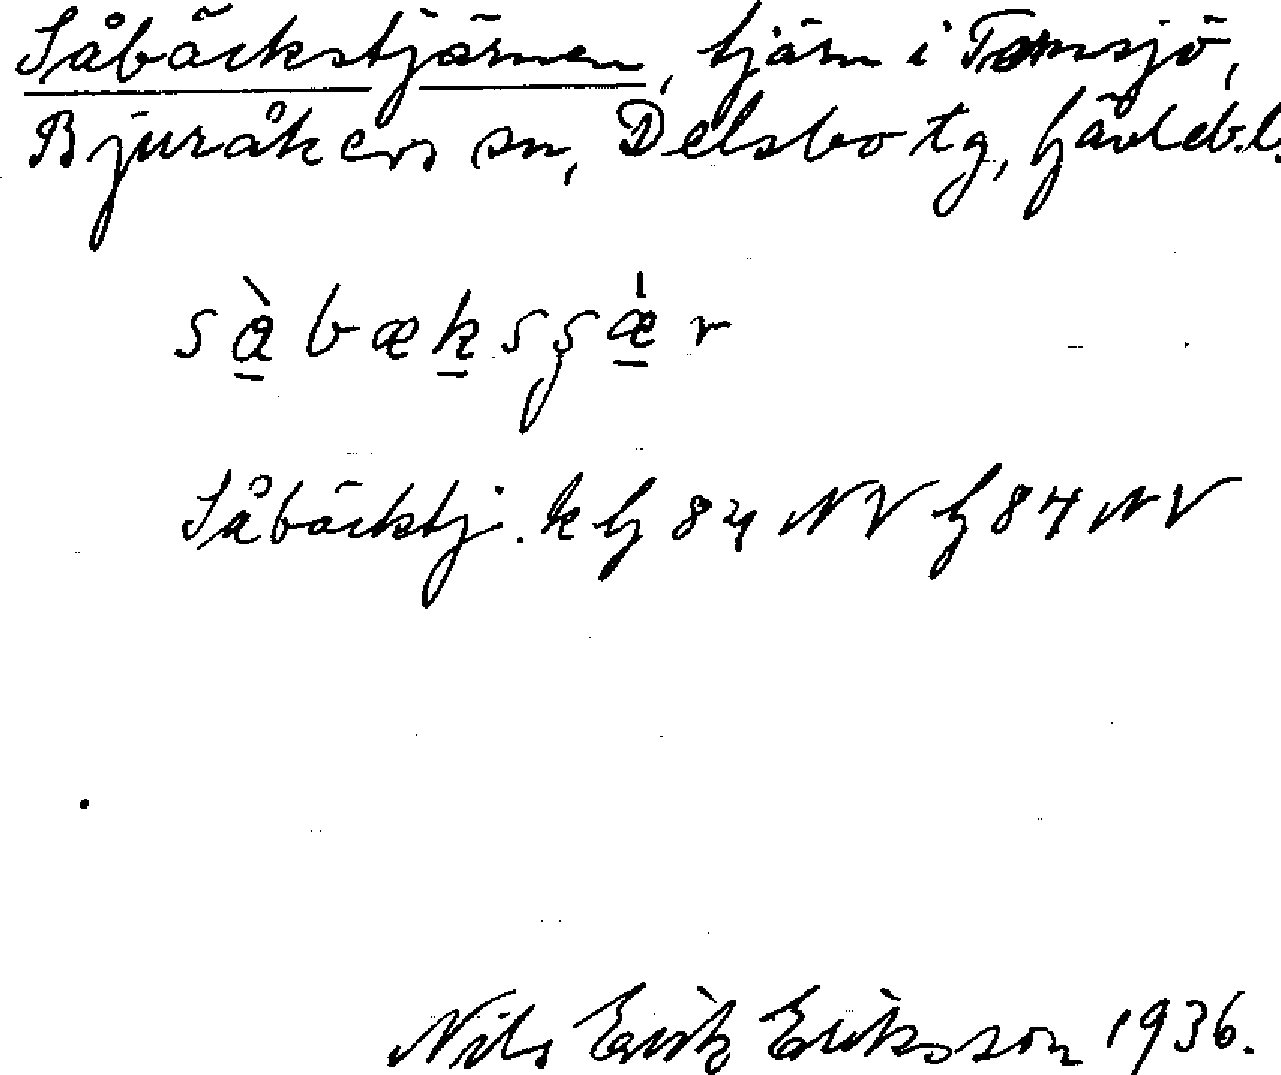 Såbäckstjärnen, tjärn i Tomsjö,
Bjuråkers sn, Delsbo tg, Gävleb.l.
sàbæksʂær
Såbäckstj. k G 84 NV G 84 NV
Nils Erik Eriksson 1936.